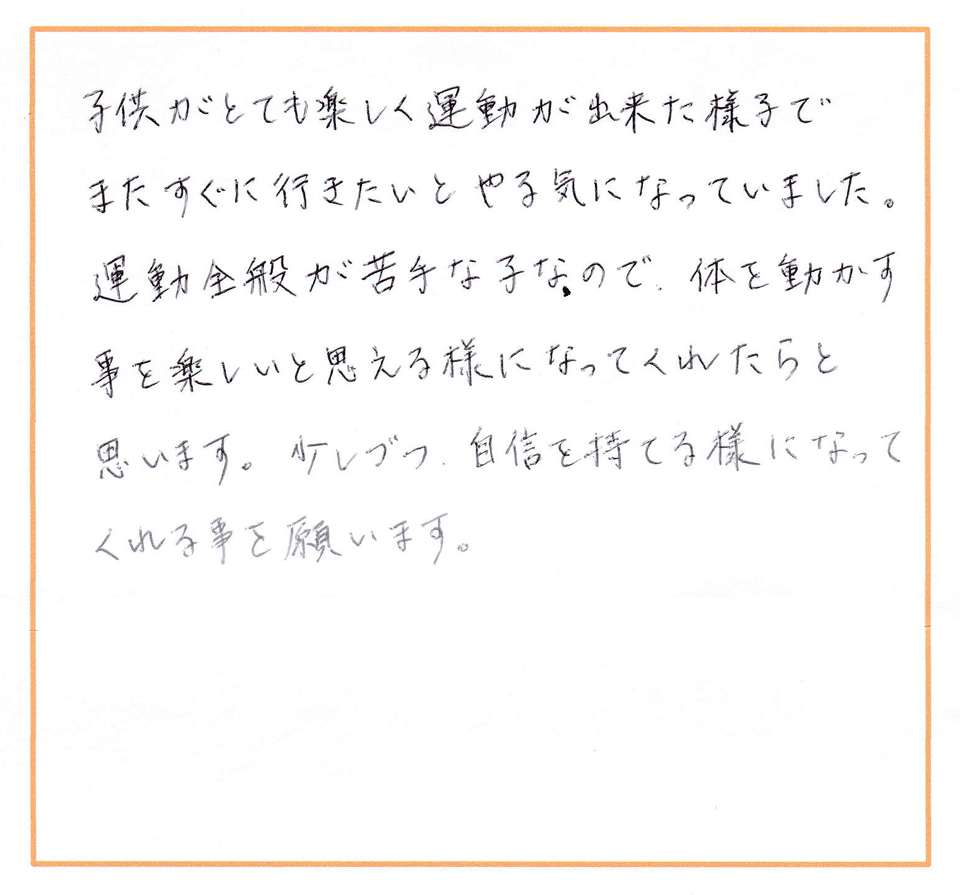 子供がとても楽しく運動が出来た様子で
またすぐに行きたいとやる気になっていました。
運動全般が苦手な子なので、体を動かす
事を楽しいと思える様になってくれたらと
思います。少しづつ、自信を持てる様になって
くれる事を願います。